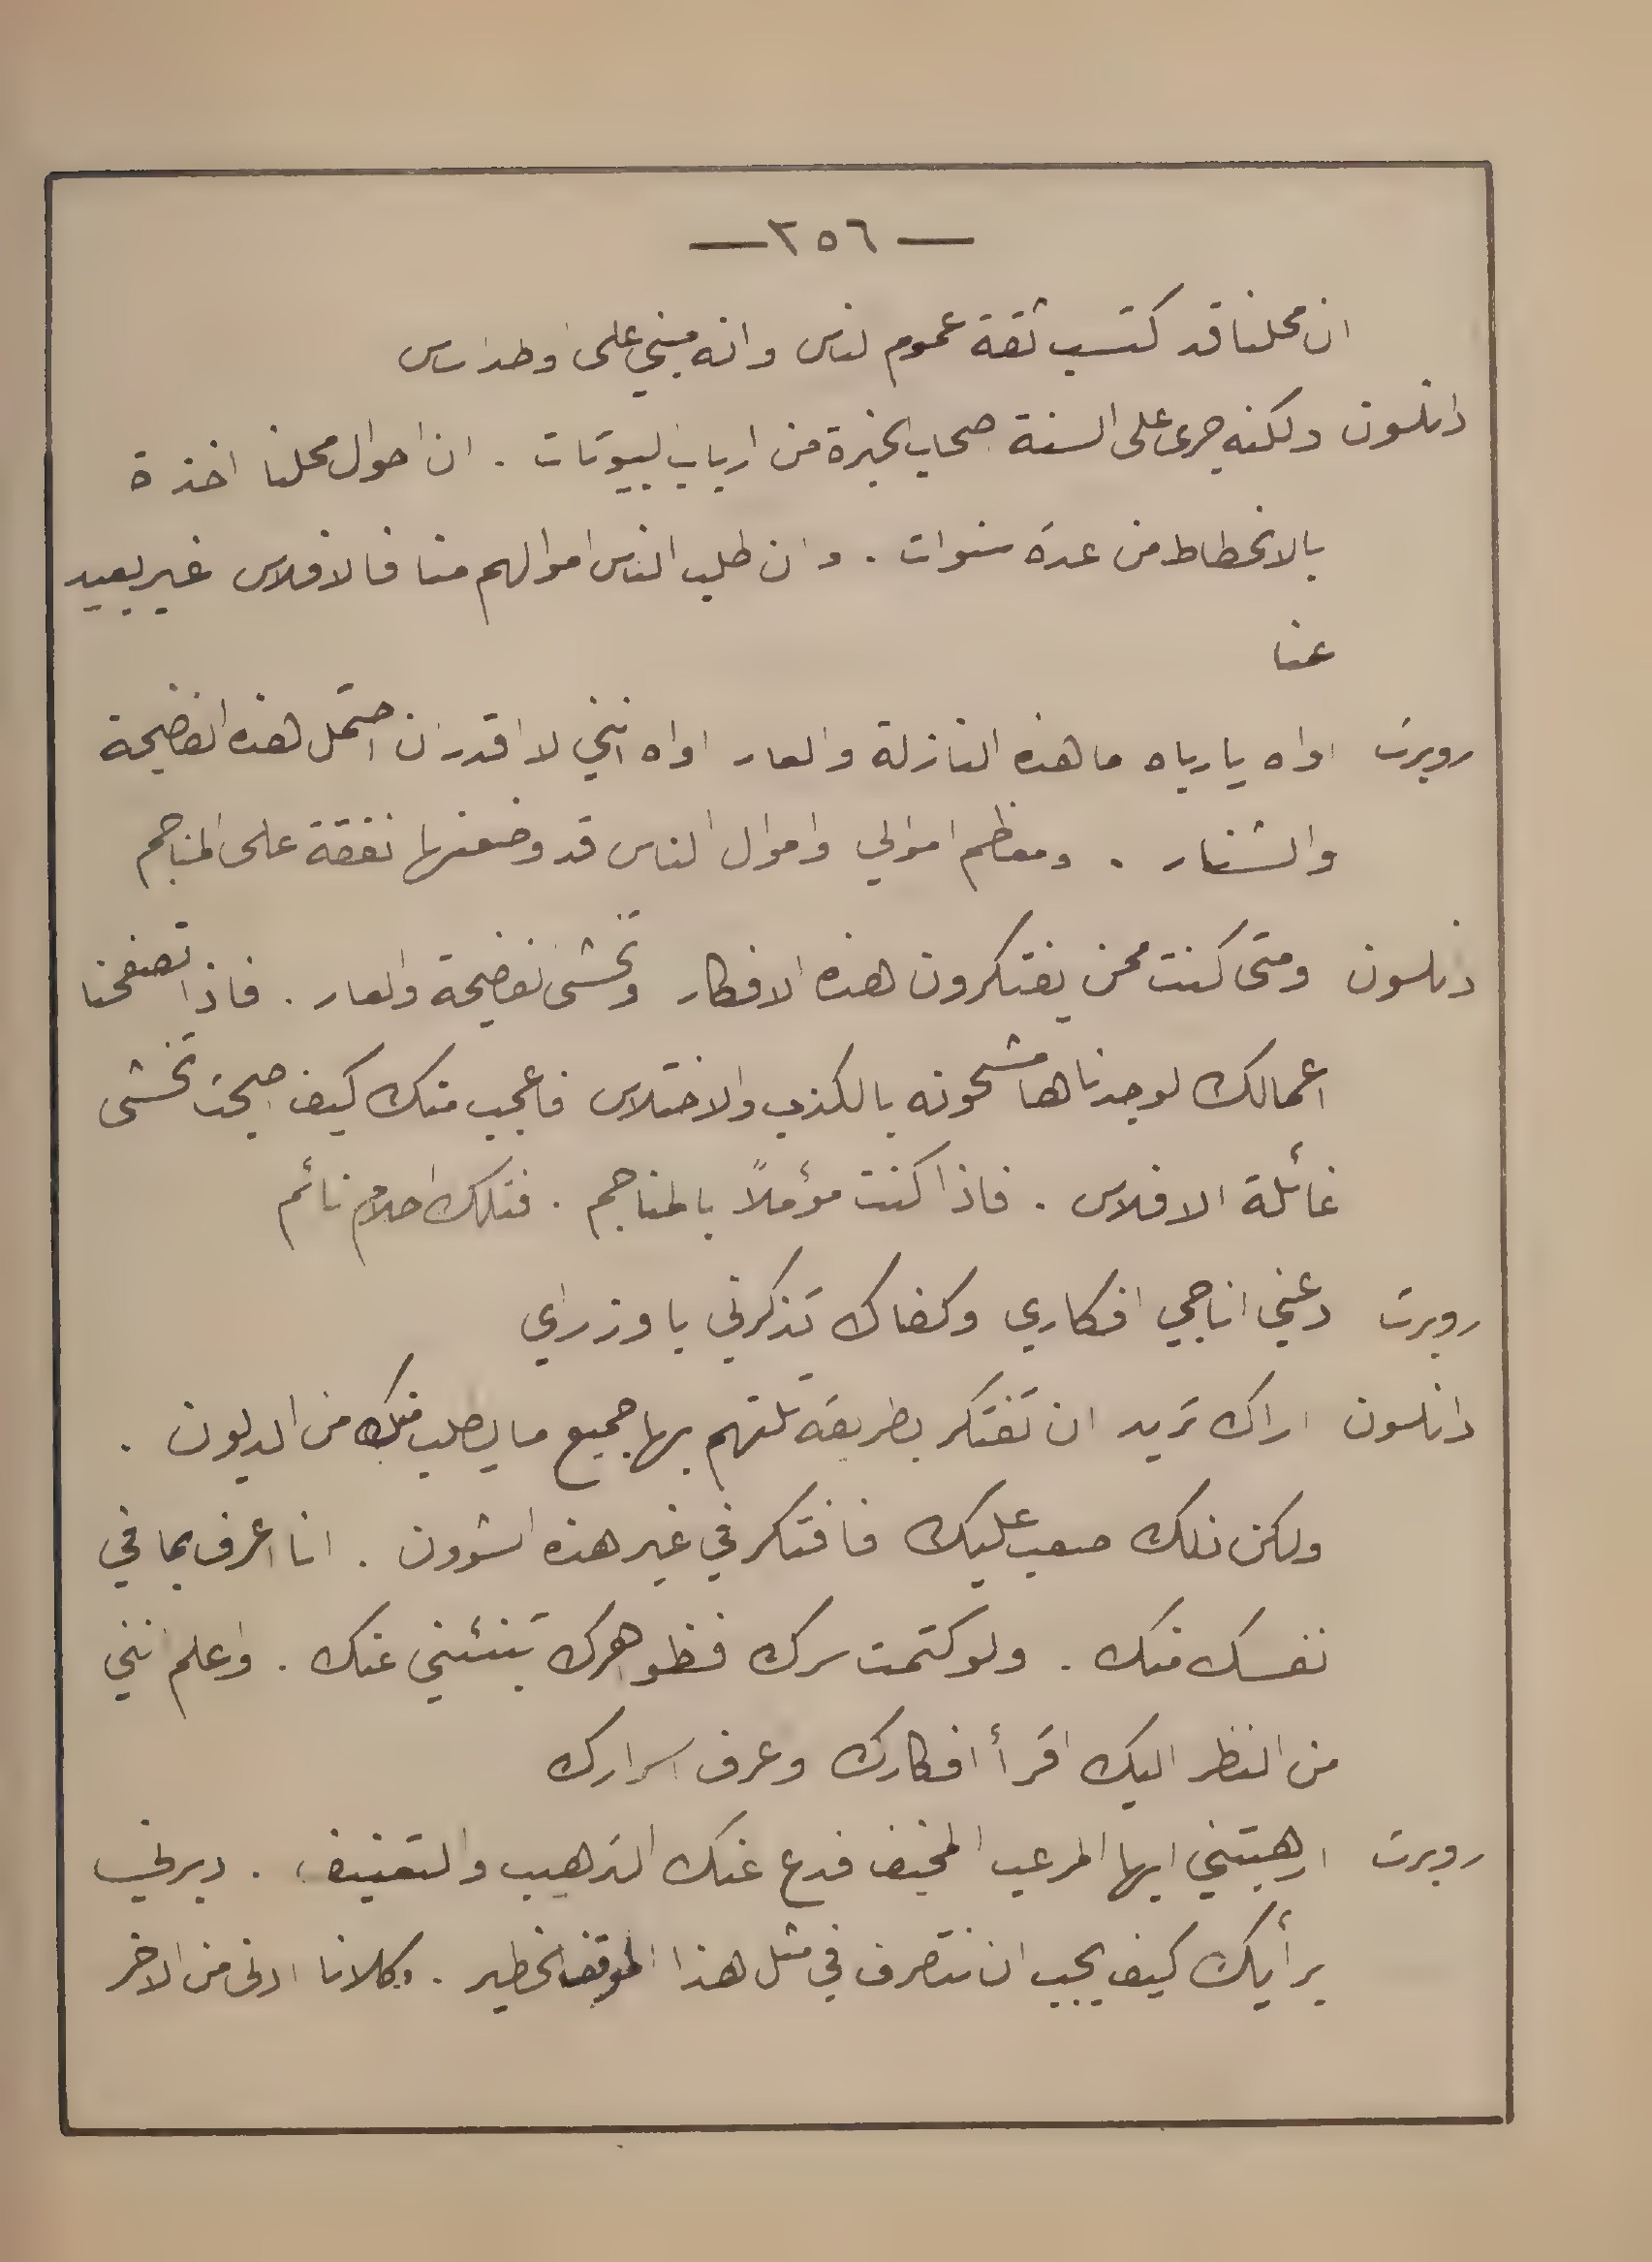 — ٢٥٦ —
ان محلنا قد كتسب ثقة عموم لناس وانه مبني على اوطد ساس
دانلسون ولكنه جرى على السنة صحاب الخبرة من ارباب لبيوتات . ان احوال محلنا اخذة
بالانحطاط من عدة سنوات . وان طلب الناس اموالهم منا فالافلاس غير بعيد
عنا
روبرت اواه يارباه ما هذه النازلة والعار اواه انني لا اقدر ان احتمل هذه الفضيحة
والشنار . ومعظم اموالي واموال الناس قد وضعتها نفقة على المناجم
دنلسون ومتى كنت ممن يفتكرون هذه الافكار وتخشى لفضيحة والعار . فاذا تصفحنا
اعمالك لوجدناها مشحونه بالكذب والاختلاس فاعجب منك كيف صبحت تخشى
غائلة الافلاس . فاذا كنت مؤملاً بالمناجم . فتلك احلام نائم
روبرت دعني اناجي افكاري وكفاك تذكرني باوزراي
دانلسون اراك تريد ان تفتكر بطريقة تلتهم بها جميع ما يطلب منك من الديون .
ولكن ذلك صعب عليك فافتكر في غير هذه الشوون . انا اعرف بما في
نفسك منك . ولو كتمت سرك فظواهرك تنبئني عنك . واعلم انني
من النظر اليك اقرأ افكارك وعرف اسرارك
روبرت ارهبتني ايها المرعب المخيف فدع عنك الترهيب والتعنيف . دبرني
برأيك كيف يجب ان نتصرف في مثل هذا الموقف الخطير . وكلانا ادنى من الاخر